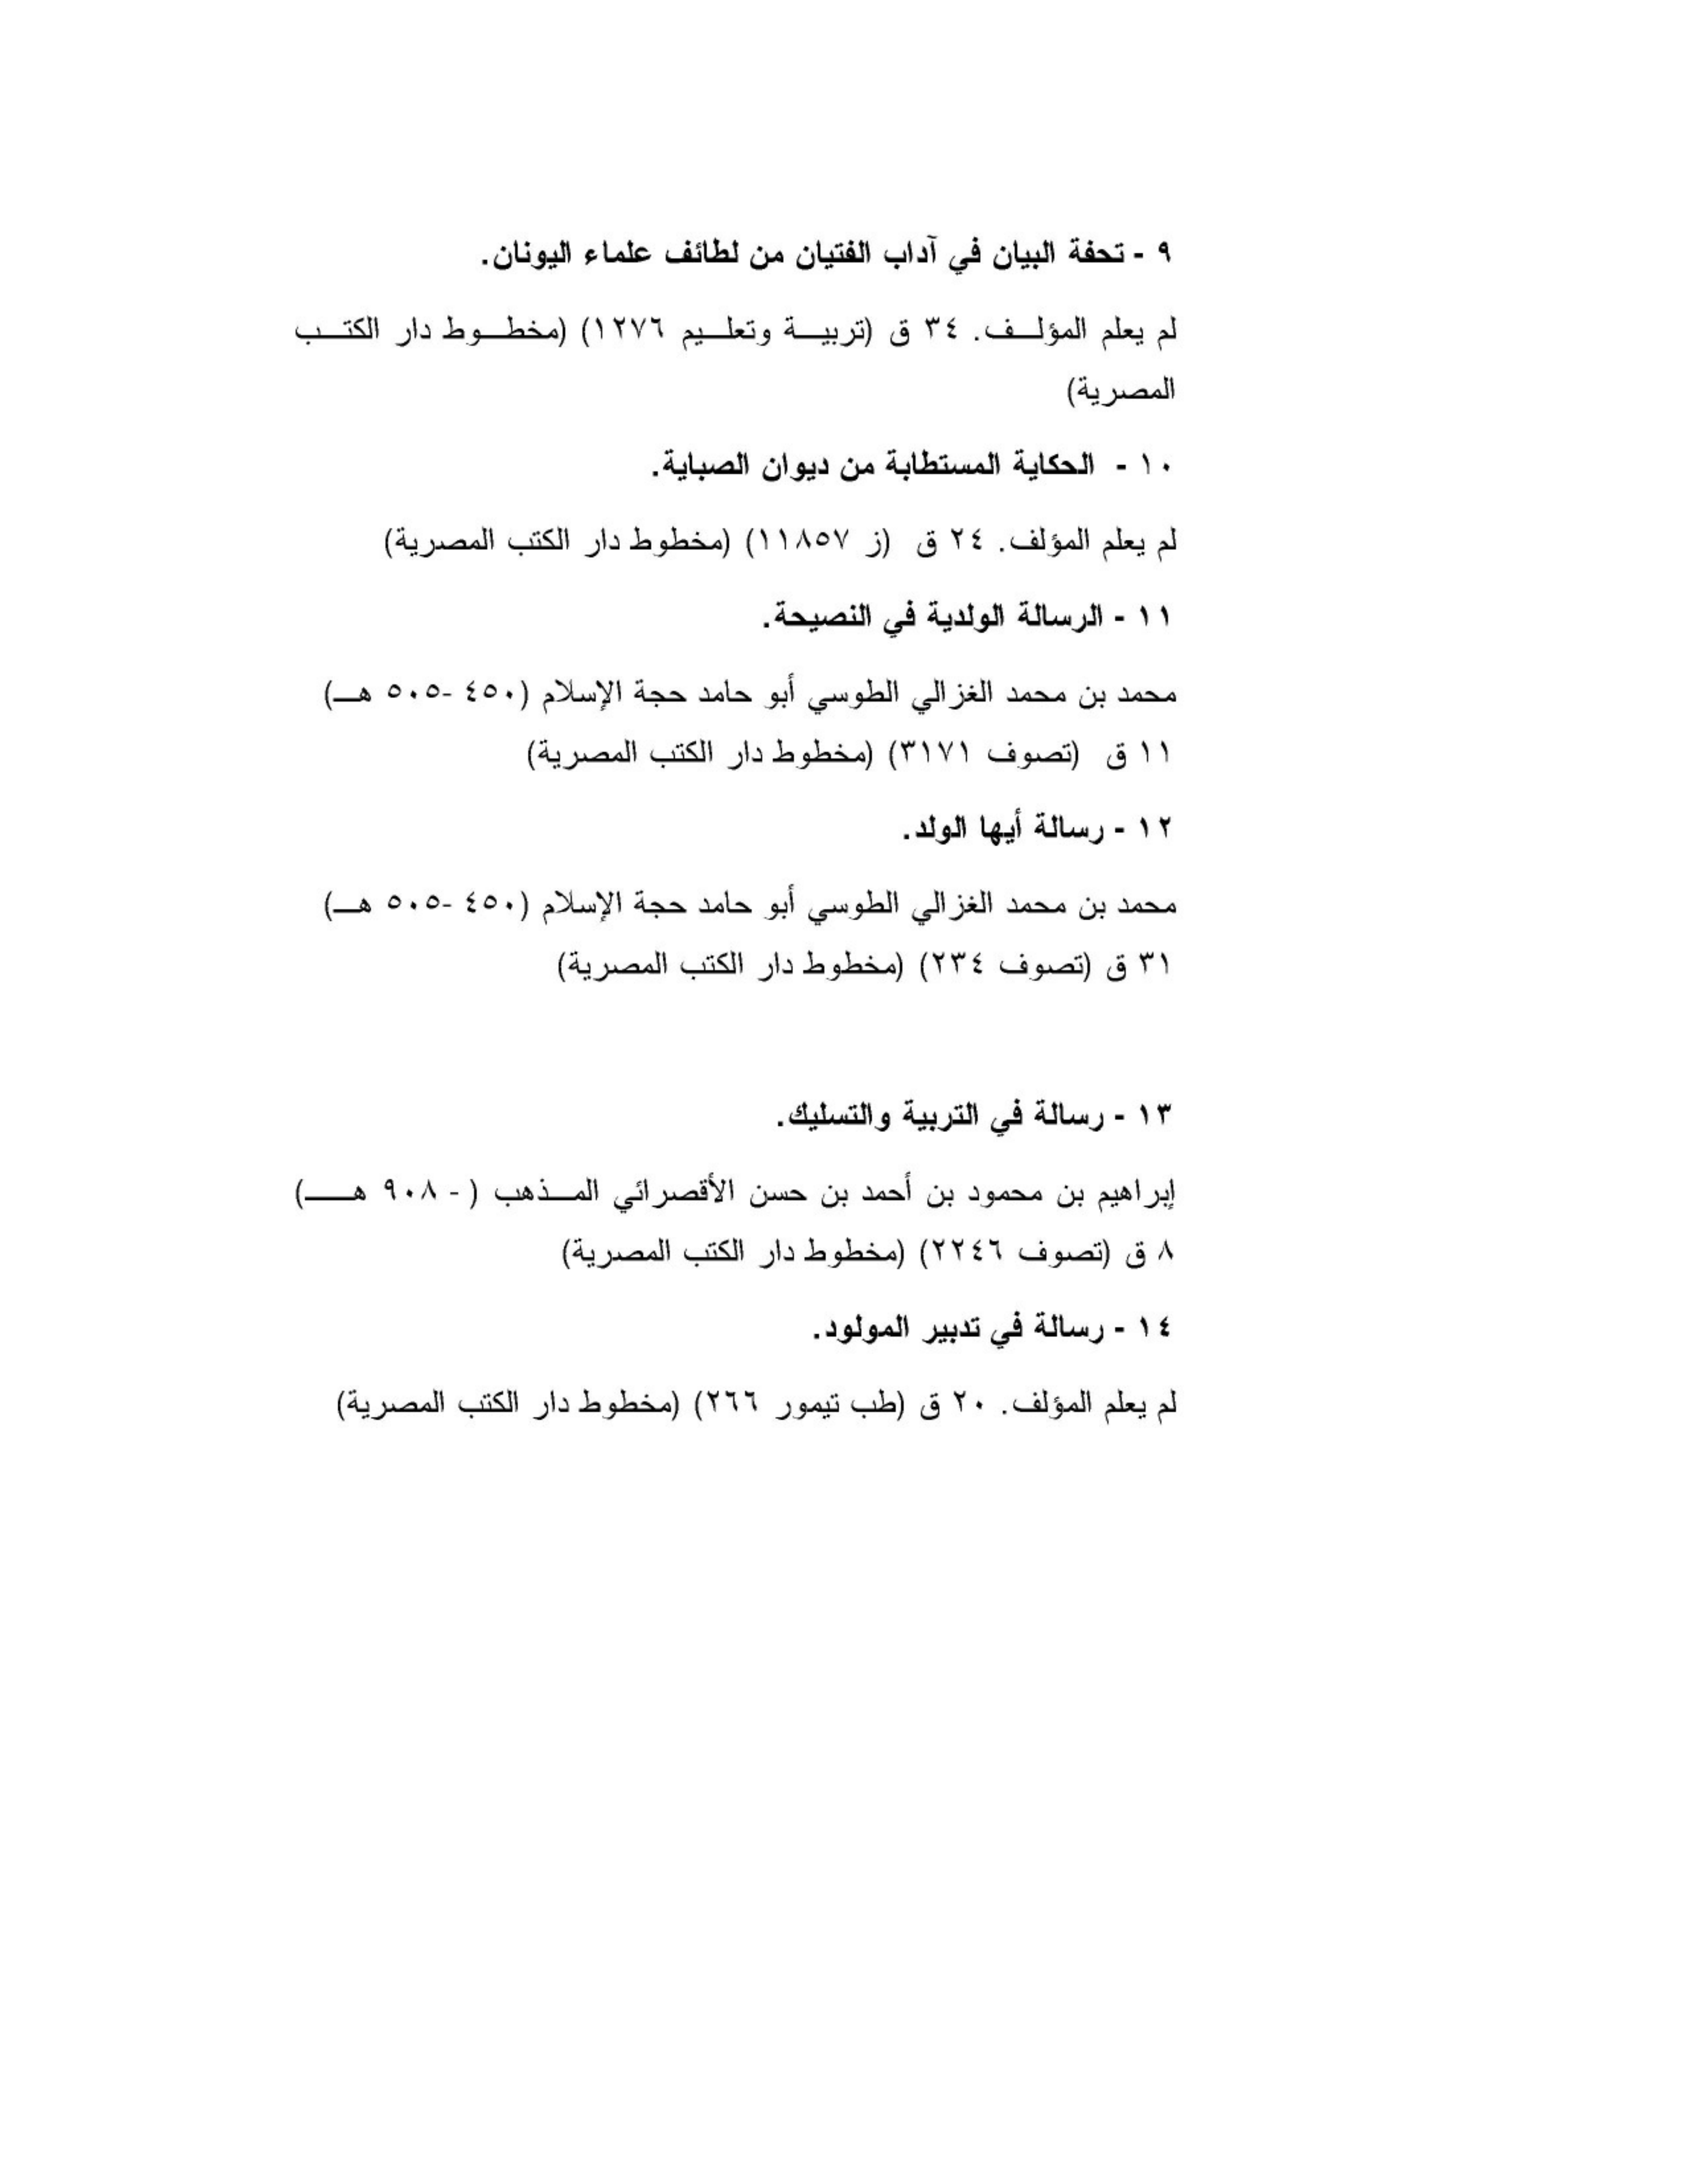 ٩ - تحفة البيان في آداب الفتيان من لطائف علماء اليونان.
لم يعلم المؤلـــف. ٣٤ ق (تربيـــة وتعلـــيم ١٢٧٦) (مخطـــوط دار الكتـــب
المصرية)
١٠ - الحكاية المستطابة من ديوان الصبابة.
لم يعلم المؤلف. ٢٤ ق (ز ١١٨٥٧) (مخطوط دار الكتب المصرية)
١١ - الرسالة الولدية في النصيحة.
محمد بن محمد الغزالي الطوسي أبو حامد حجة الإسلام (٤٥٠ -٥٠٥ هــ)
١١ ق (تصوف ٣١٧١) (مخطوط دار الكتب المصرية)
١٢ - رسالة أيها الولد.
محمد بن محمد الغزالي الطوسي أبو حامد حجة الإسلام (٤٥٠ -٥٠٥ هــ)
٣١ ق (تصوف ٢٣٤) (مخطوط دار الكتب المصرية)
١٣ - رسالة في التربية والتسليك.
إبراهيم بن محمود بن أحمد بن حسن الأقصرائي المـــذهب ( - ٩٠٨ هـــ)
٨ ق (تصوف ٢٢٤٦) (مخطوط دار الكتب المصرية)
١٤ - رسالة في تدبير المولود.
لم يعلم المؤلف. ٢٠ ق (طب تيمور ٢٦٦) (مخطوط دار الكتب المصرية)